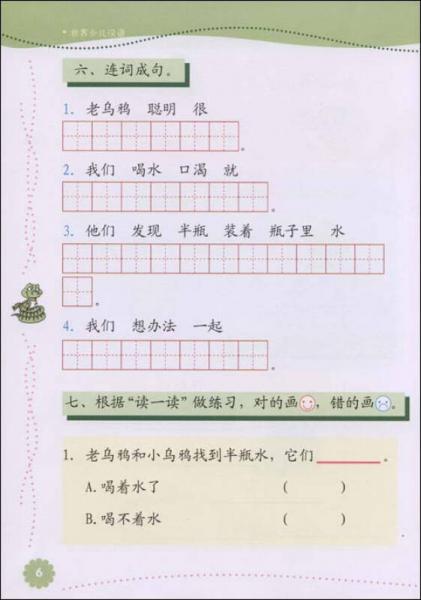 世界少儿汉语
六、连词成句。
1. 老乌鸦 聪明 很
。
2. 我们 喝水 口渴 就
。
3. 他们 发现 半瓶 装着 瓶子里 水
。
4. 我们 想办法 一起
。
七、根据“读一读”做练习，对的画，错的画。
1. 老乌鸦和小乌鸦找到半瓶水，它们______。
A. 喝着水了 ( )
B. 喝不着水 ( )
6